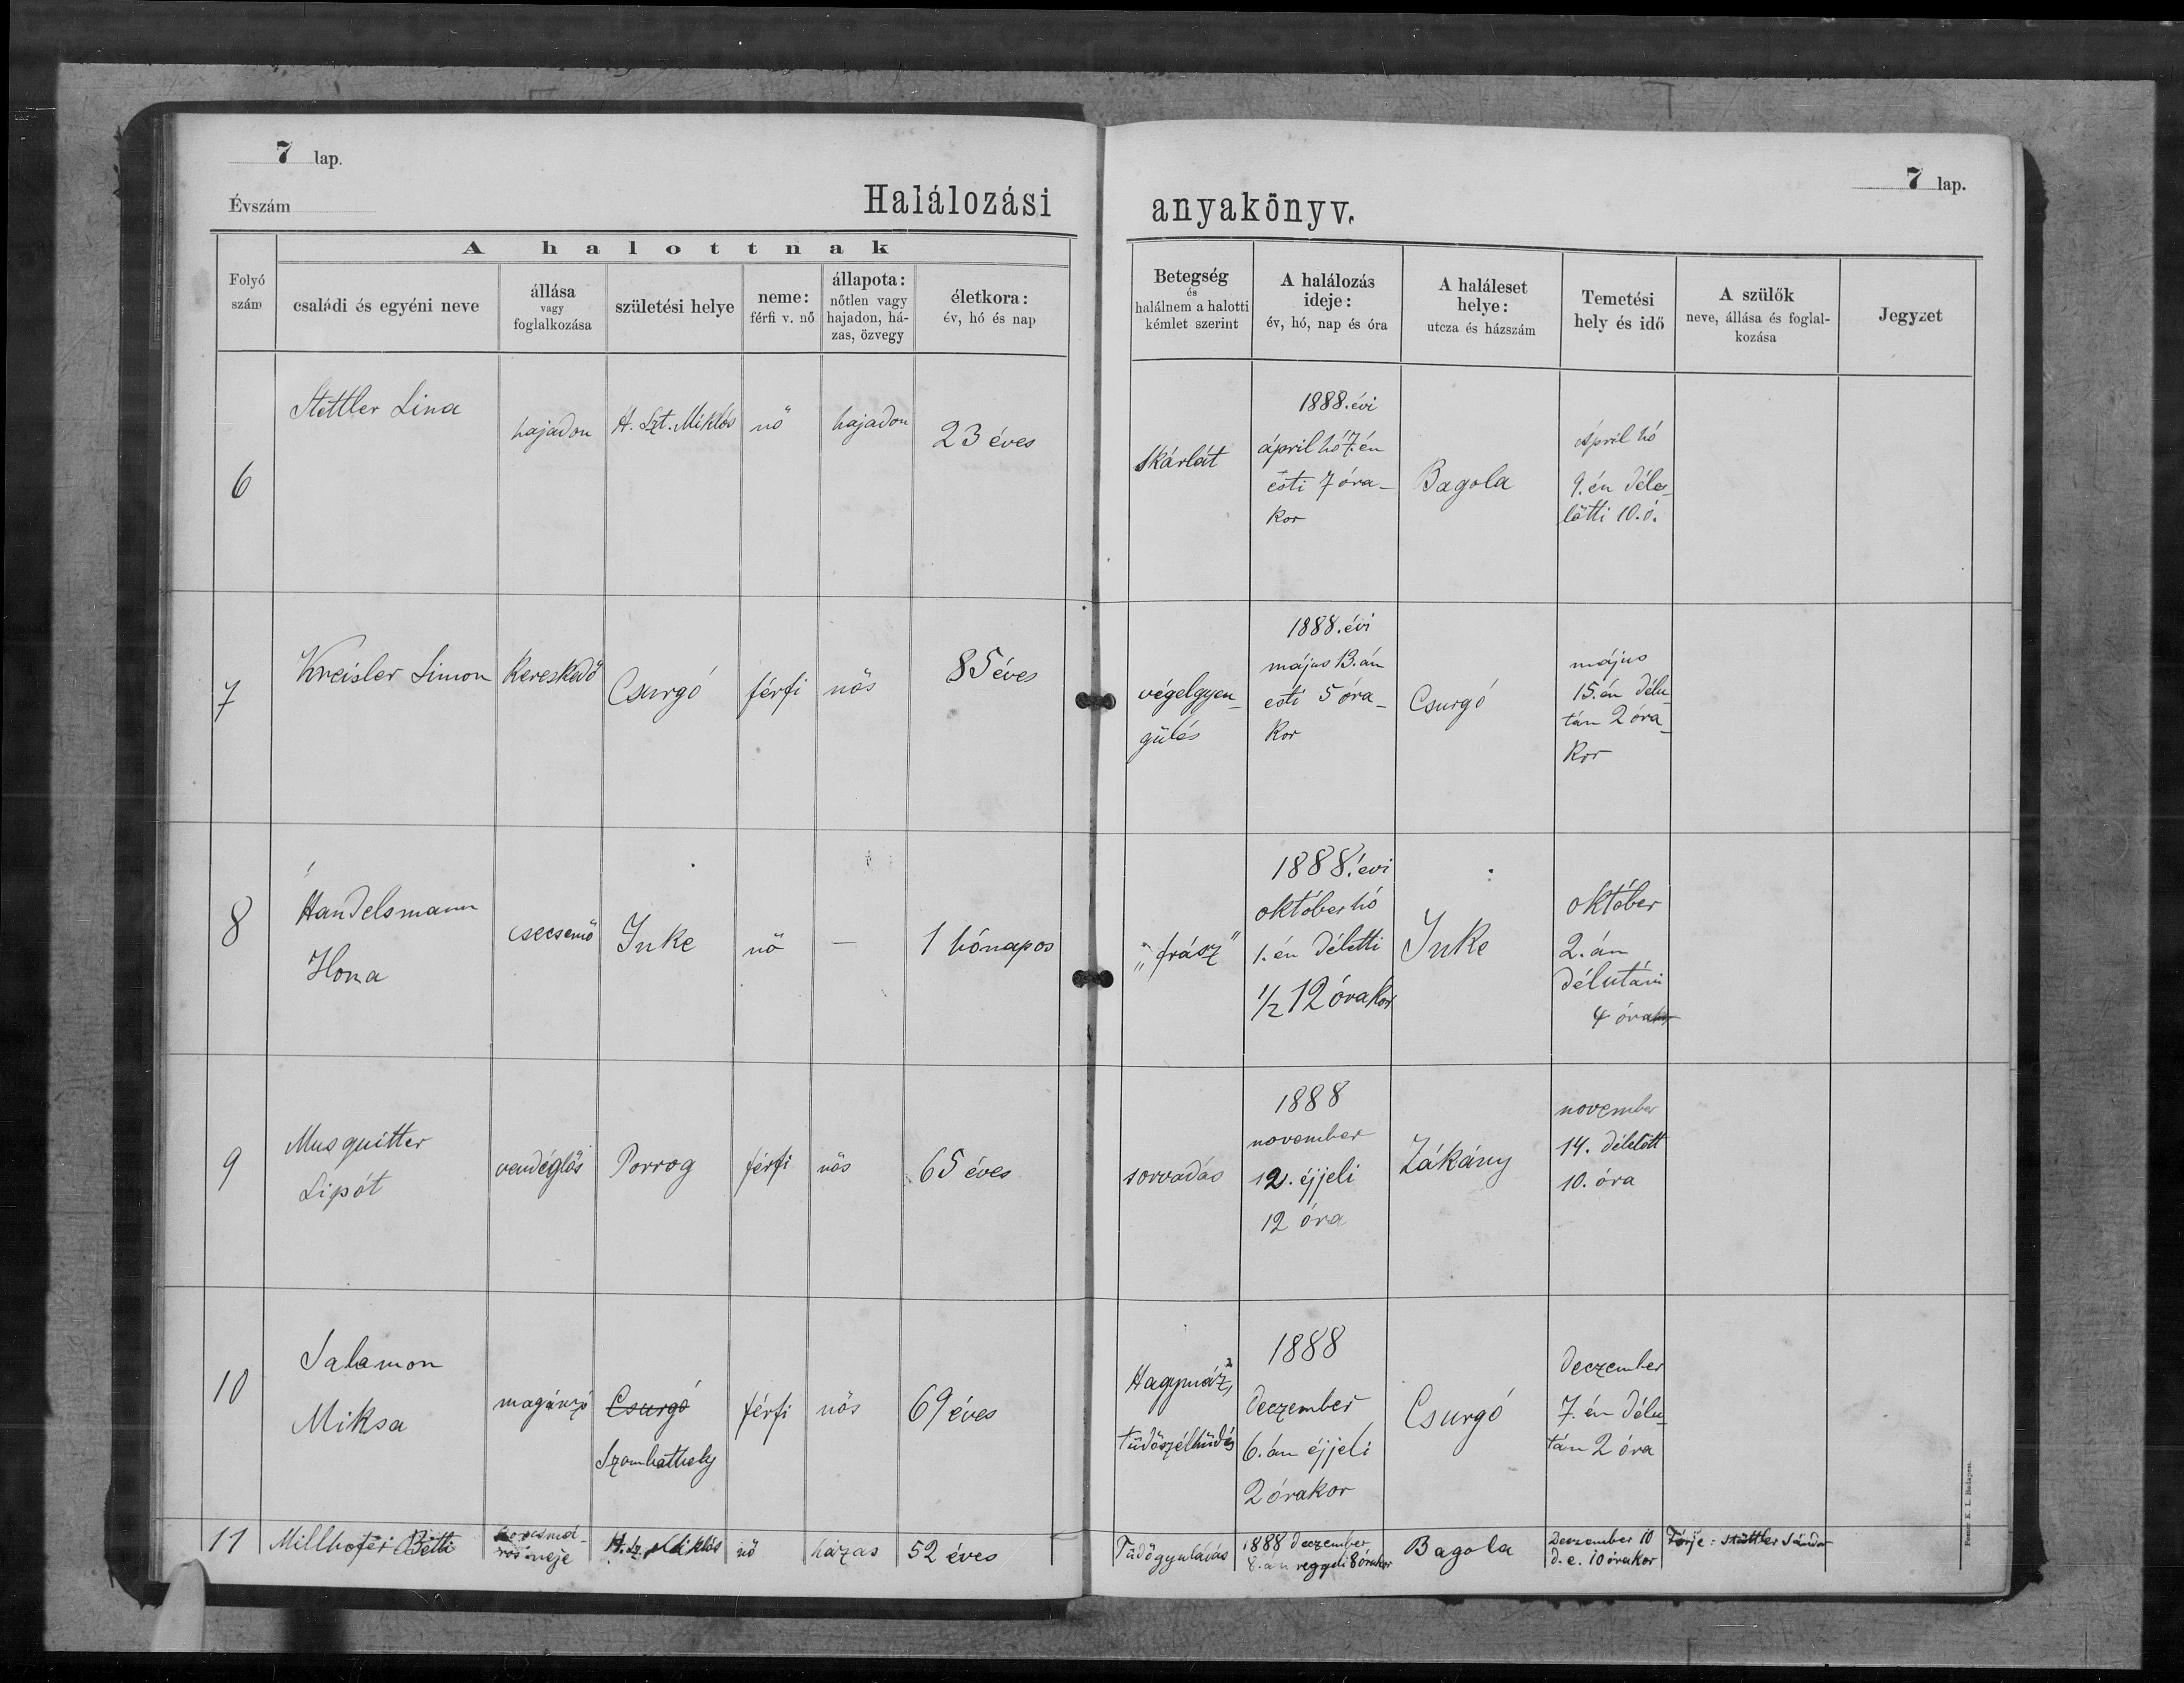 7 lap.
Évszám
Halálozási
anyakönyv.
7 lap.
Folyó szám
A halottnak
családi és egyéni neve
állása vagy foglalkozása
születési helye
neme: férfi v. nő
állapota: nőtlen vagy hajadon, há-zas, özvegy
életkora: év, hó és nap
Betegség és halálnem a halotti kémlet szerint
A halálozás ideje: év, hó, nap és óra
A haláleset helye: utcza és házszám
Temetési hely és idő
A szülők neve, állása és foglal-kozása
Jegyzet
6
Stettler Lina
hajadon
H. Szt. Miklós
nő
hajadon
23 éves
Skárlát
1888. évi
április hó 7. én
esti 7 óra-
kor
Bagola
April hó
9. én déle-
lőtti 10. ó.
7
Kreisler Simon
Kereskedő
Csurgó
férfi
nős
85 éves
végelgyen-
gülés
1888. évi
május 13. án
esti 5 óra-
kor
Csurgó
május
15. én délu-
tán 2 óra-
kor
8
Handelsmann
Ilona
csecsemő
Inke
nő
—
1 hónapos
„frász"
1888. évi
október hó
1. én déletti
1/2 12 órakor
Inke
október
2. án
délutáni
4 óra
9
Musquitter
Lipót
vendéglős
Porrog
férfi
nős
65 éves
sorvadás
1888
november
12. éjjeli
12 óra
Zákány
november
14. délelőtt
10. óra
10
Salamon
Miksa
magánzó
Csurgó
Szombathely
férfi
nős
69 éves
Hagymáz,
tüdőszélhüdés
1888
deczember
6. án éjjeli
2 órakor
Csurgó
deczember
7. én délu-
tán 2 óra
11
Millhofer Betti
korcsmá-
ros neje
H. Sz. Miklós
nő
házas
52 éves
Tüdőgyuladás
1888 deczember
8. án reggeli 8 órakor
Bagola
Deczember 10
d. e. 10 órakor
Férje: Stättler Sándor
Posner K. L. Budapest.